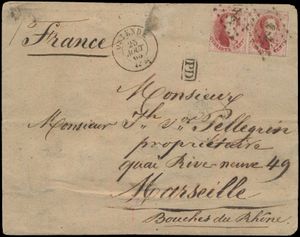 France
OSTENDE
25
AOUT
PD
Monsieur
Monsieur Jh Pellegrin
propriétaire
quai Rive neuve 49
Marseille
Bouches du Rhône.